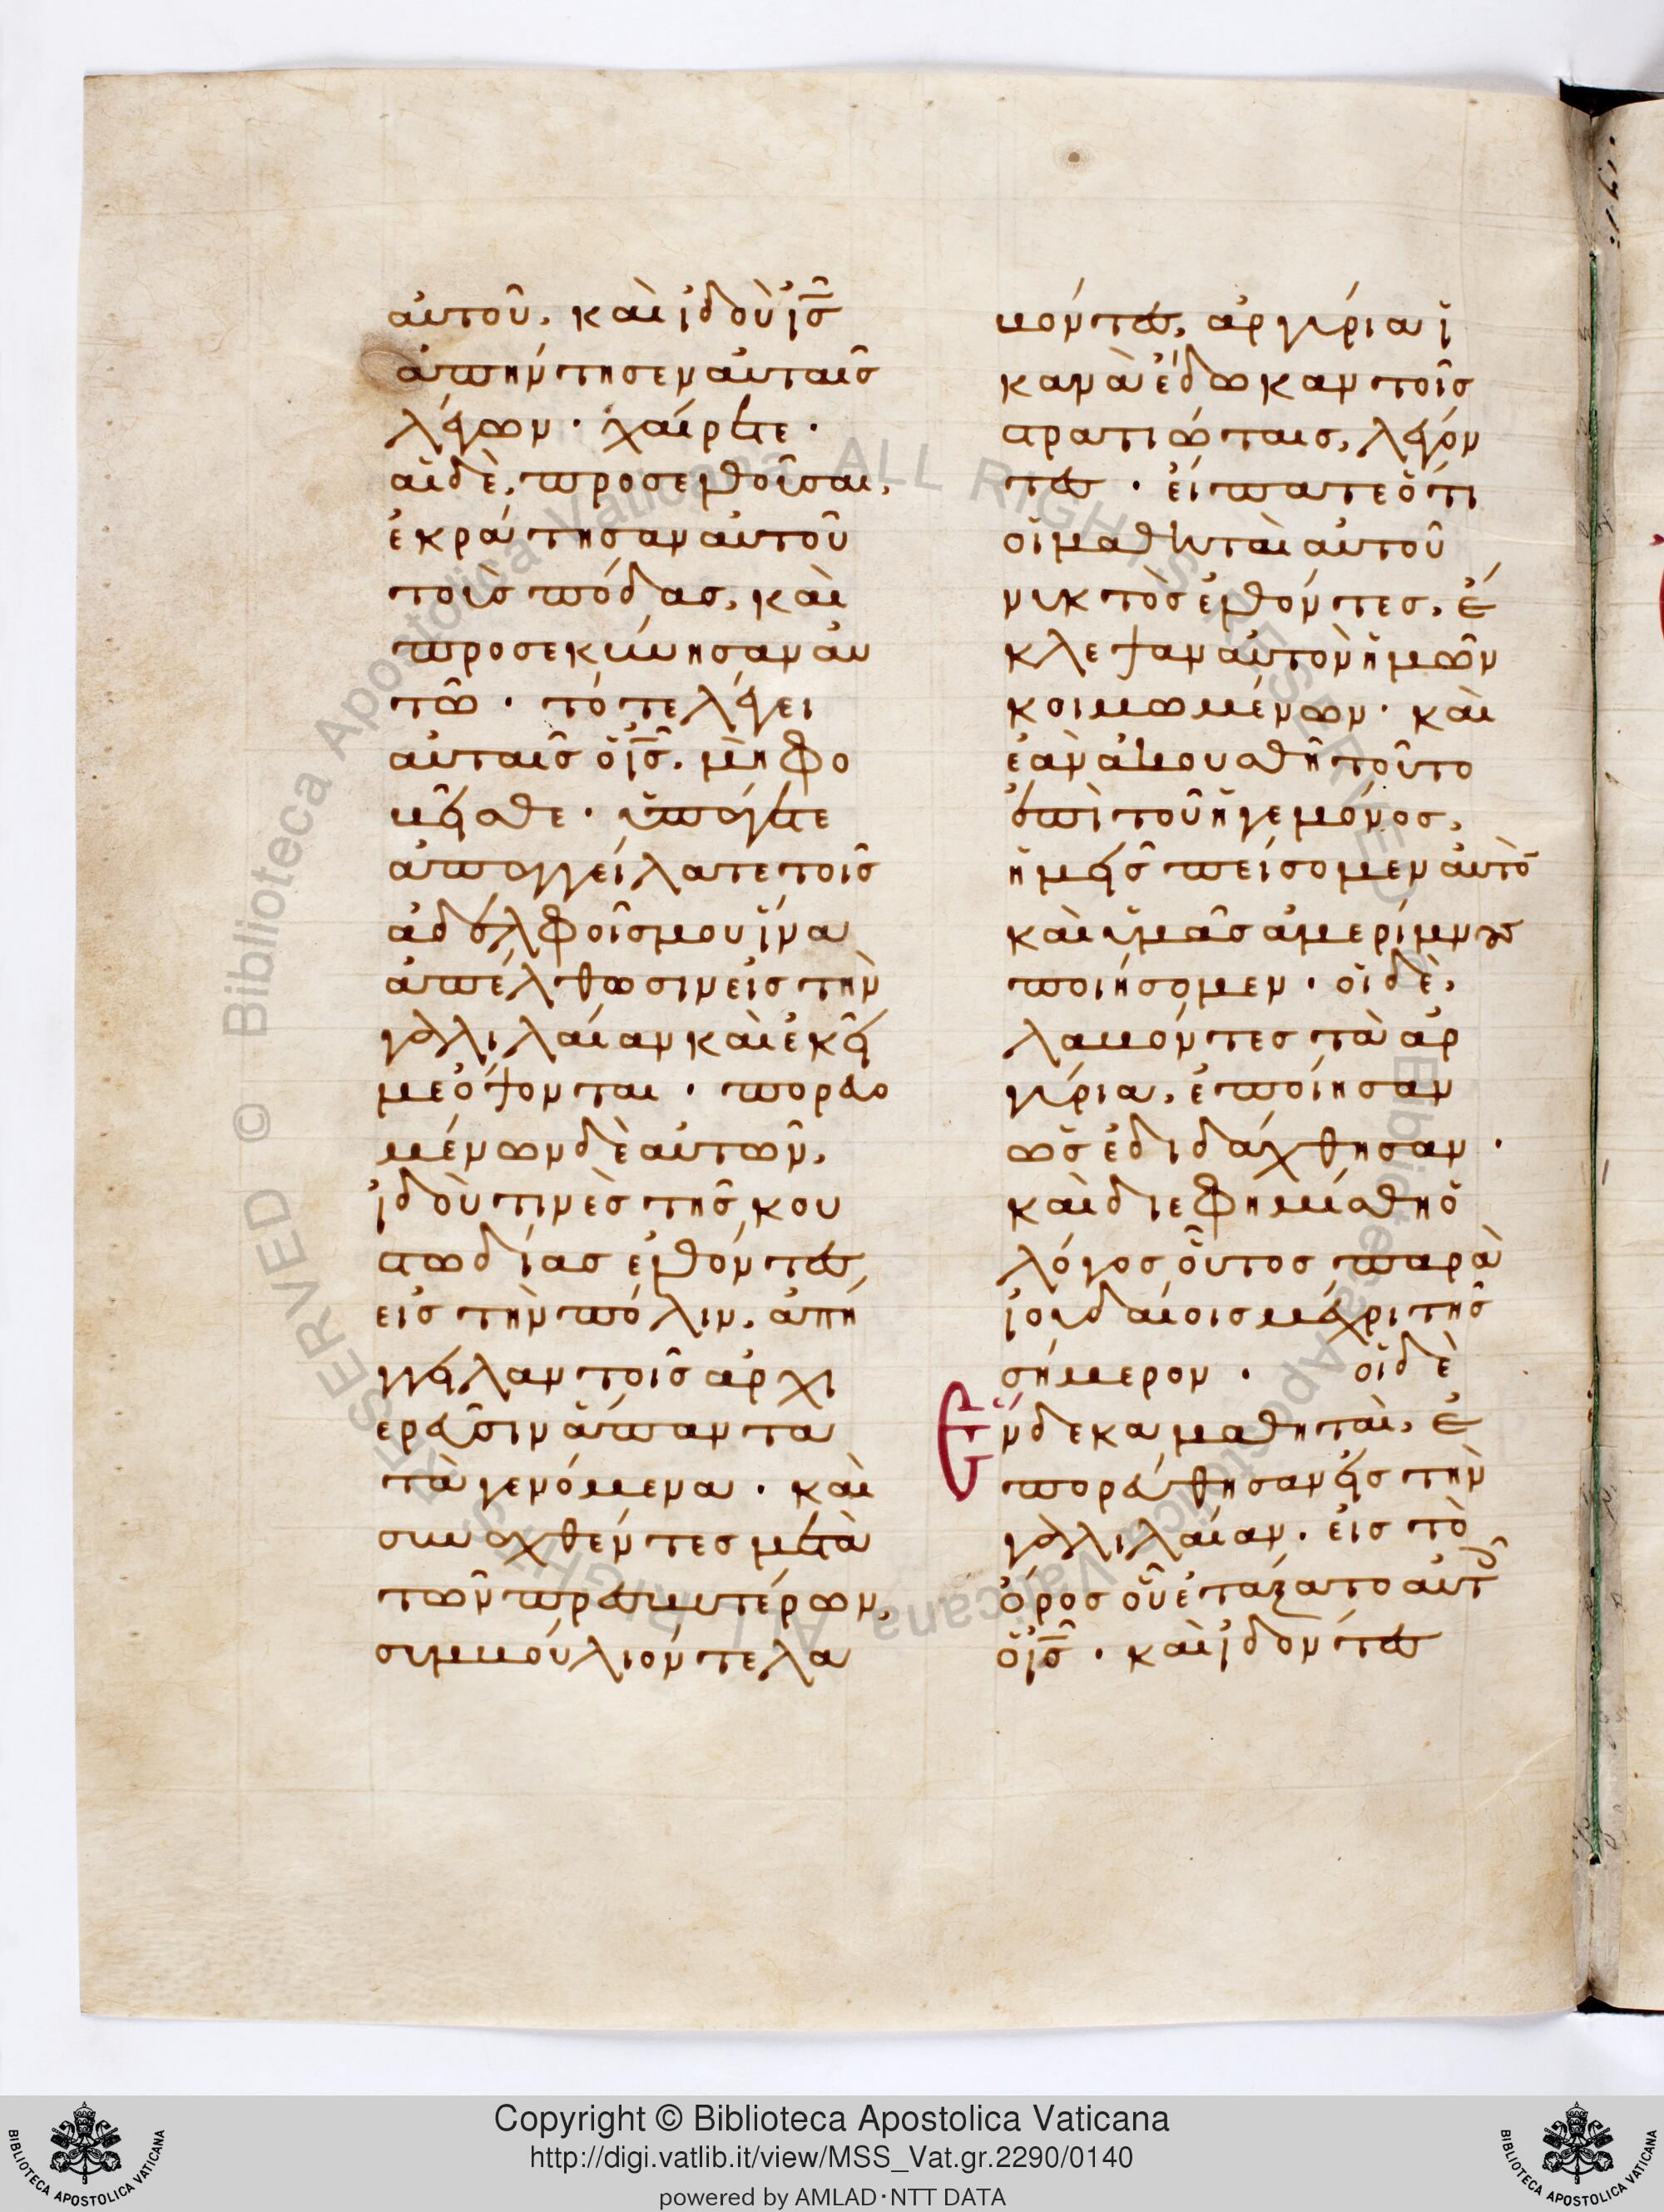 αὐτοῦ, καὶ ἰδοὺ ἰς
ἀπήντησεν αὐταῖς
λέγων · χαίρετε ·
αἱ δὲ, προσελθοῦσαι,
ἐκράτησαν αὐτοῦ
τοὺς πόδας, καὶ
προσεκύνησαν αὐ
τῶ · τότε λέγει
αὐταῖς ὁ ἰς. μὴ φο
βεῖσθε · ὑπάγετε
ἀπαγγείλατε τοῖς
ἀδελφοῖς μου ἵνα
ἀπέλθωσιν εἰς τὴν
γαλιλαίαν καὶ ἐκεῖ
με ὄψονται · πορευο
μένων δὲ αὐτῶν,
ἰδού τινὲς τῆς κου
στωδίας ἐλθόντες
εἰς τὴν πόλιν, ἀπή
γγειλαν τοῖς ἀρχι
ερεῦσιν ἅπαντα
τὰ γενόμενα · καὶ
συναχθέντες μετὰ
τῶν πρεσβυτέρων,
συμβούλιόν τε λα
βόντες, ἀργύρια ἱ
κανὰ ἔδωκαν τοῖς
στρατιώταις, λέγον
τες · εἴπατε ὅτι
οἱ μαθηταὶ αὐτοῦ
νυκτὸς ἐλθόντες, ἔ
κλεψαν αὐτὸν ἡμῶν
κοιμωμένων · καὶ
ἐὰν ἀκουσθῆ τοῦτο
ἐπὶ τοῦ ἡγεμόνος,
ἡμεῖς πείσομεν αὐτὸ
καὶ ὑμᾶς ἀμερίμνους
ποιήσομεν · οἱ δὲ,
λαβόντες τὰ ἀρ
γύρια, ἐποίησαν
ὡς ἐδιδάχθησαν ·
καὶ διεφημίσθη ὁ
λόγος οὗτος παρὰ
ἰουδαίοις μέχρι τῆς
σήμερον · οἱ δὲ
ἕνδεκα μαθηταὶ, ἐ
πορεύθησαν εἰς τὴν
γαλιλαίαν. εἰς τὸ
ὄρος οὗ ἐτάξατο αὐτ
ὁ ἰς · καὶ ἰδόντες
© Biblioteca Apostolica Vaticana ALL RIGHTS RESERVED
© Biblioteca Apostolica Vaticana ALL RIGHTS RESERVED
Copyright © Biblioteca Apostolica Vaticana
http://digi.vatlib.it/view/MSS_Vat.gr.2290/0140
powered by AMLAD·NTT DATA
BIBLIOTECA APOSTOLICA VATICANA
BIBLIOTECA APOSTOLICA VATICANA